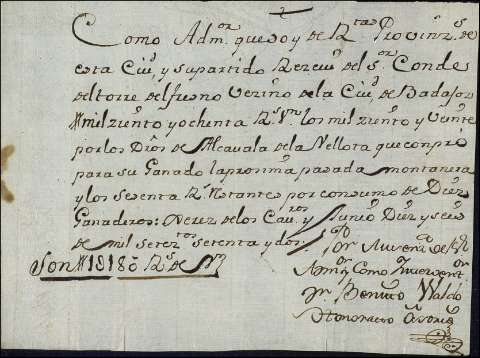 Como Adm.or que soy de R.tas Provinz.s de
esta Ciu.d y su partido Rezeui del S.or Conde
del torre del fresno Vezino de la Ciu.d de Badajoz
mil ziento y ochenta R.s V.n los mil ziento y Veinte
por los Dros de Alcauala de la Vellota que conpró
para su Ganado la proxima pasada montanera
y los Sesenta R.s Restantes por consumo de
Ganaderos: Xerez de los Cau.ros y Junio Diez y seis
de mil Setez.tos Setenta y dos
Son 1180 R.s de V.n
Por
Adm.or y Como
Benito Waldo
Honorato